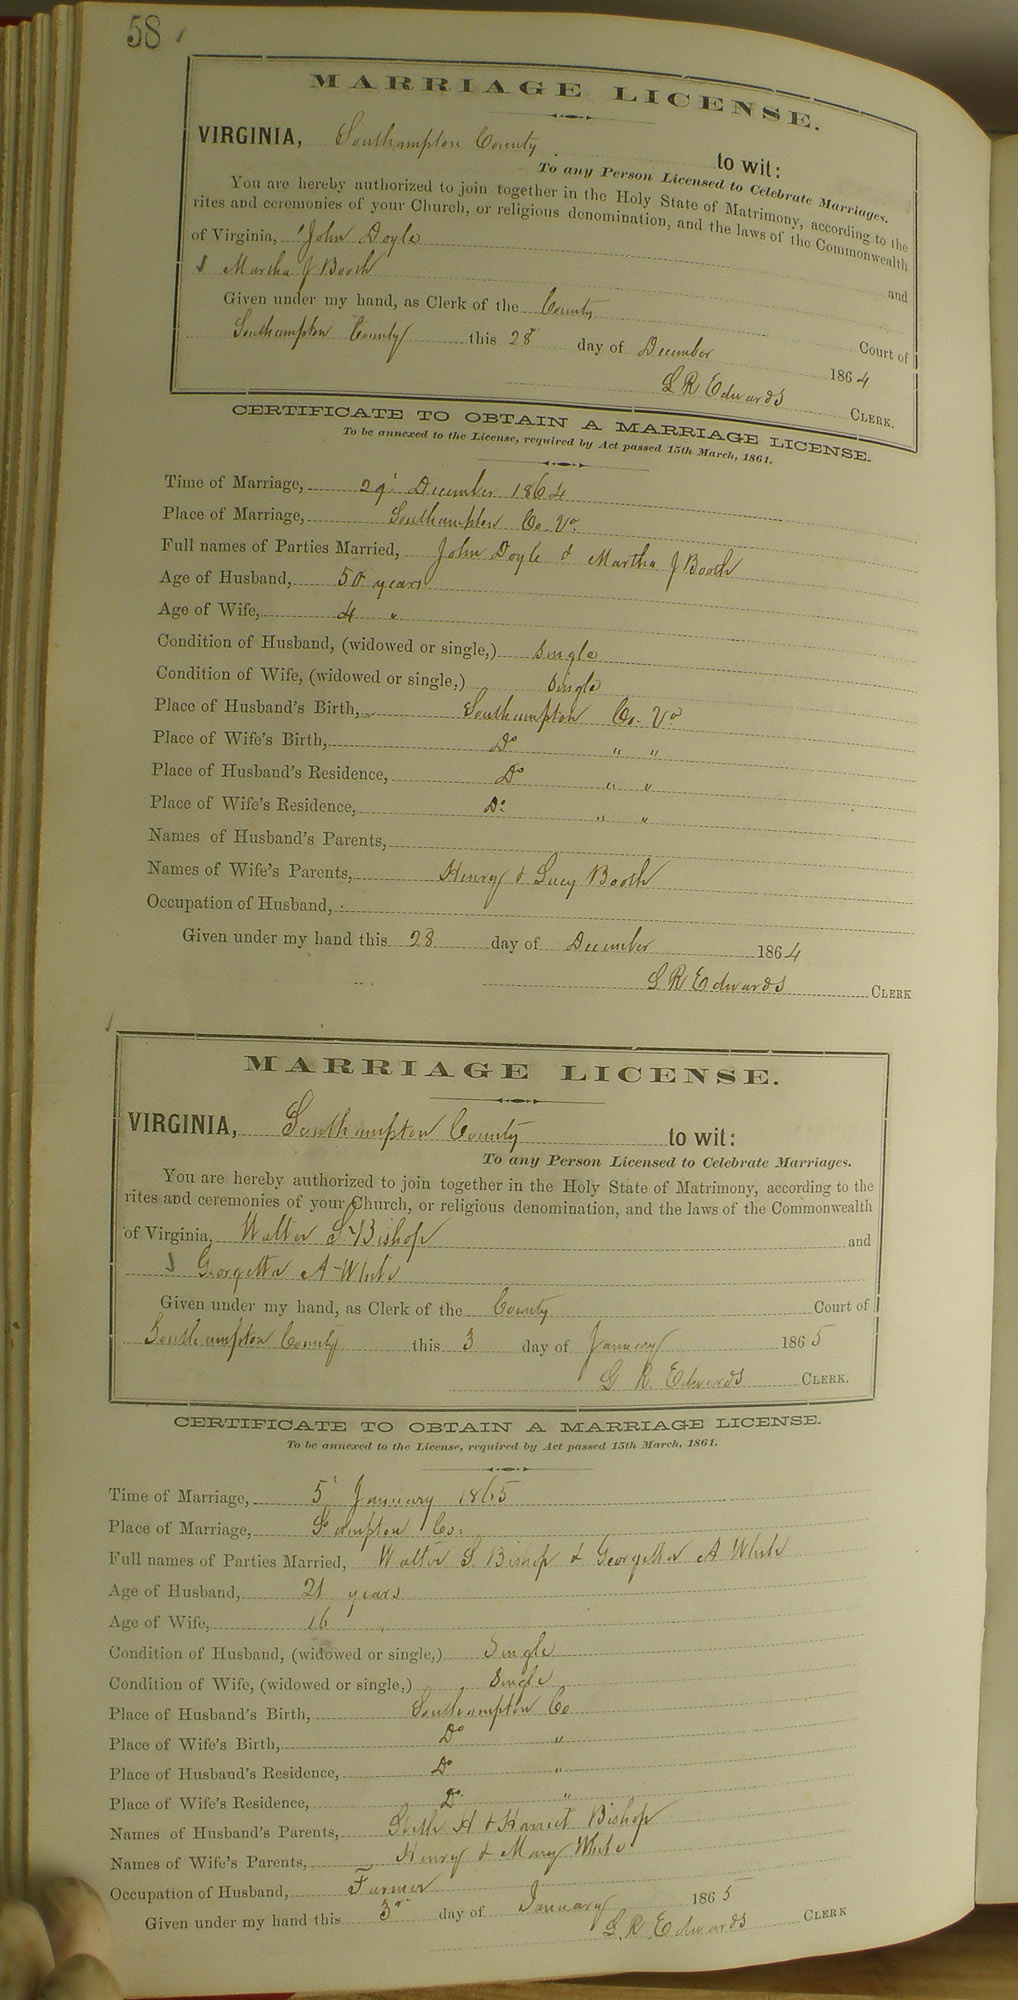 58
MARRIAGE LICENSE.
VIRGINIA, Southampton County to wit:
To any Person Licensed to Celebrate Marriages.
You are hereby authorized to join together in the Holy State of Matrimony, according to the
rites and ceremonies of your Church, or religious denomination, and the laws of the Commonwealth
of Virginia, John Doyle and
Martha J Booth
Given under my hand, as Clerk of the County Court of
Southampton County this 28 day of December 1864
L R Edwards CLERK.
CERTIFICATE TO OBTAIN A MARRIAGE LICENSE.
To be annexed to the License, required by Act passed 15th March, 1861.
Time of Marriage, 29' December 1864
Place of Marriage, Southampton Co. Va
Full names of Parties Married, John Doyle & Martha J Booth
Age of Husband, 50 years
Age of Wife, "
Condition of Husband, (widowed or single,) Single
Condition of Wife, (widowed or single,) Single
Place of Husband's Birth, Southampton Co. Va
Place of Wife's Birth, Do " "
Place of Husband's Residence, Do " "
Place of Wife's Residence, Do " "
Names of Husband's Parents,
Names of Wife's Parents, Henry & Lucy Booth
Occupation of Husband,
Given under my hand this 28 day of December 1864
L R Edwards CLERK
MARRIAGE LICENSE.
VIRGINIA, Southampton County to wit:
To any Person Licensed to Celebrate Marriages.
You are hereby authorized to join together in the Holy State of Matrimony, according to the
rites and ceremonies of your Church, or religious denomination, and the laws of the Commonwealth
of Virginia, Walter S. Bishop and
Georgetta A White
Given under my hand, as Clerk of the County Court of
Southampton County this 3 day of January 1865
L R. Edwards CLERK.
CERTIFICATE TO OBTAIN A MARRIAGE LICENSE.
To be annexed to the License, required by Act passed 15th March, 1861.
Time of Marriage, 5' January 1865
Place of Marriage, So ampton Co:
Full names of Parties Married, Walter S. Bishop & Georgetta A White
Age of Husband, 21 years
Age of Wife, 16 "
Condition of Husband, (widowed or single,) Single
Condition of Wife, (widowed or single,) Single
Place of Husband's Birth, Southampton Co
Place of Wife's Birth, Do "
Place of Husband's Residence, Do "
Place of Wife's Residence, Do "
Names of Husband's Parents, H & Harriet Bishop
Names of Wife's Parents, Henry & Mary White
Occupation of Husband, Farmer
Given under my hand this 3 day of January 1865
L. R. Edwards CLERK